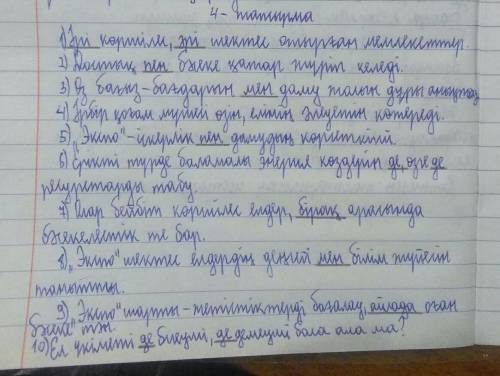 4 - тапсырма
1) Әрі көршілес, әрі шектес отырған мемлекеттер.
2) Достық пен бәсеке қатар жүріп келеді.
3) Өз бағыт-бағдарын мен даму жолын дұрыс анықтау
4) Әрбір қоғам мүшесі өзін, елінің әлеуетін көтереді.
5) "Экспо" - іскерлік пен дамудың көрсеткіші.
6) Ерікті түрде баламалы энергия көздерін де, өзге де
ресурстарды табу.
7) Олар бейбіт көршілес елдер, бірақ арасында
бәсекелестік те бар.
8) "Экспо" шектес елдердің деңгей мен білім жүйесін
танытты.
9) "Экспо" шарты - жетістіктерді бағалау, ойлада оған
бәсеке" тән.
10) Ел үкіметі де биеуші, де демеуші бола ала ма?